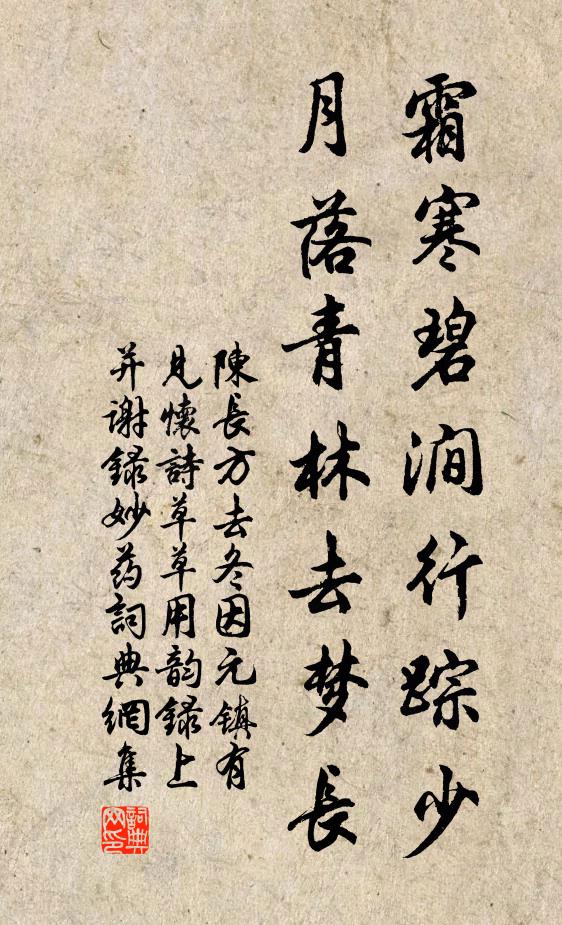 霜寒碧澗行踪少
月落青林去梦長
陳長方去冬因元鎮有
見懷詩草草用韵録上
并谢録妙药詞典網集
詞典
网印